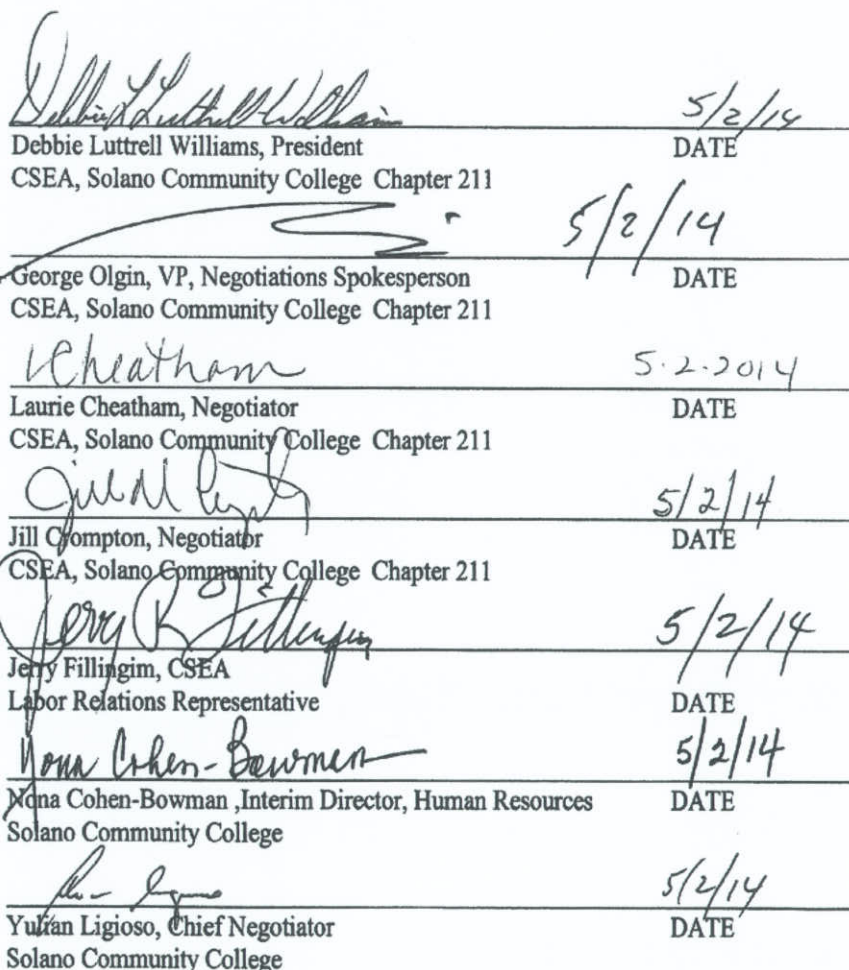 Debbie L Luttrell-Williams 5/2/14
Debbie Luttrell Williams, President DATE
CSEA, Solano Community College Chapter 211
5/2/14
George Olgin, VP, Negotiations Spokesperson DATE
CSEA, Solano Community College Chapter 211
LCheatham 5.2.2014
Laurie Cheatham, Negotiator DATE
CSEA, Solano Community College Chapter 211
Jill 5/2/14
Jill Crompton, Negotiator DATE
CSEA, Solano Community College Chapter 211
Jerry R Fillingim 5/2/14
Jerry Fillingim, CSEA
Labor Relations Representative DATE
Nona Cohen-Bowman 5/2/14
Nona Cohen-Bowman ,Interim Director, Human Resources DATE
Solano Community College
5/2/14
Yulian Ligioso, Chief Negotiator DATE
Solano Community College